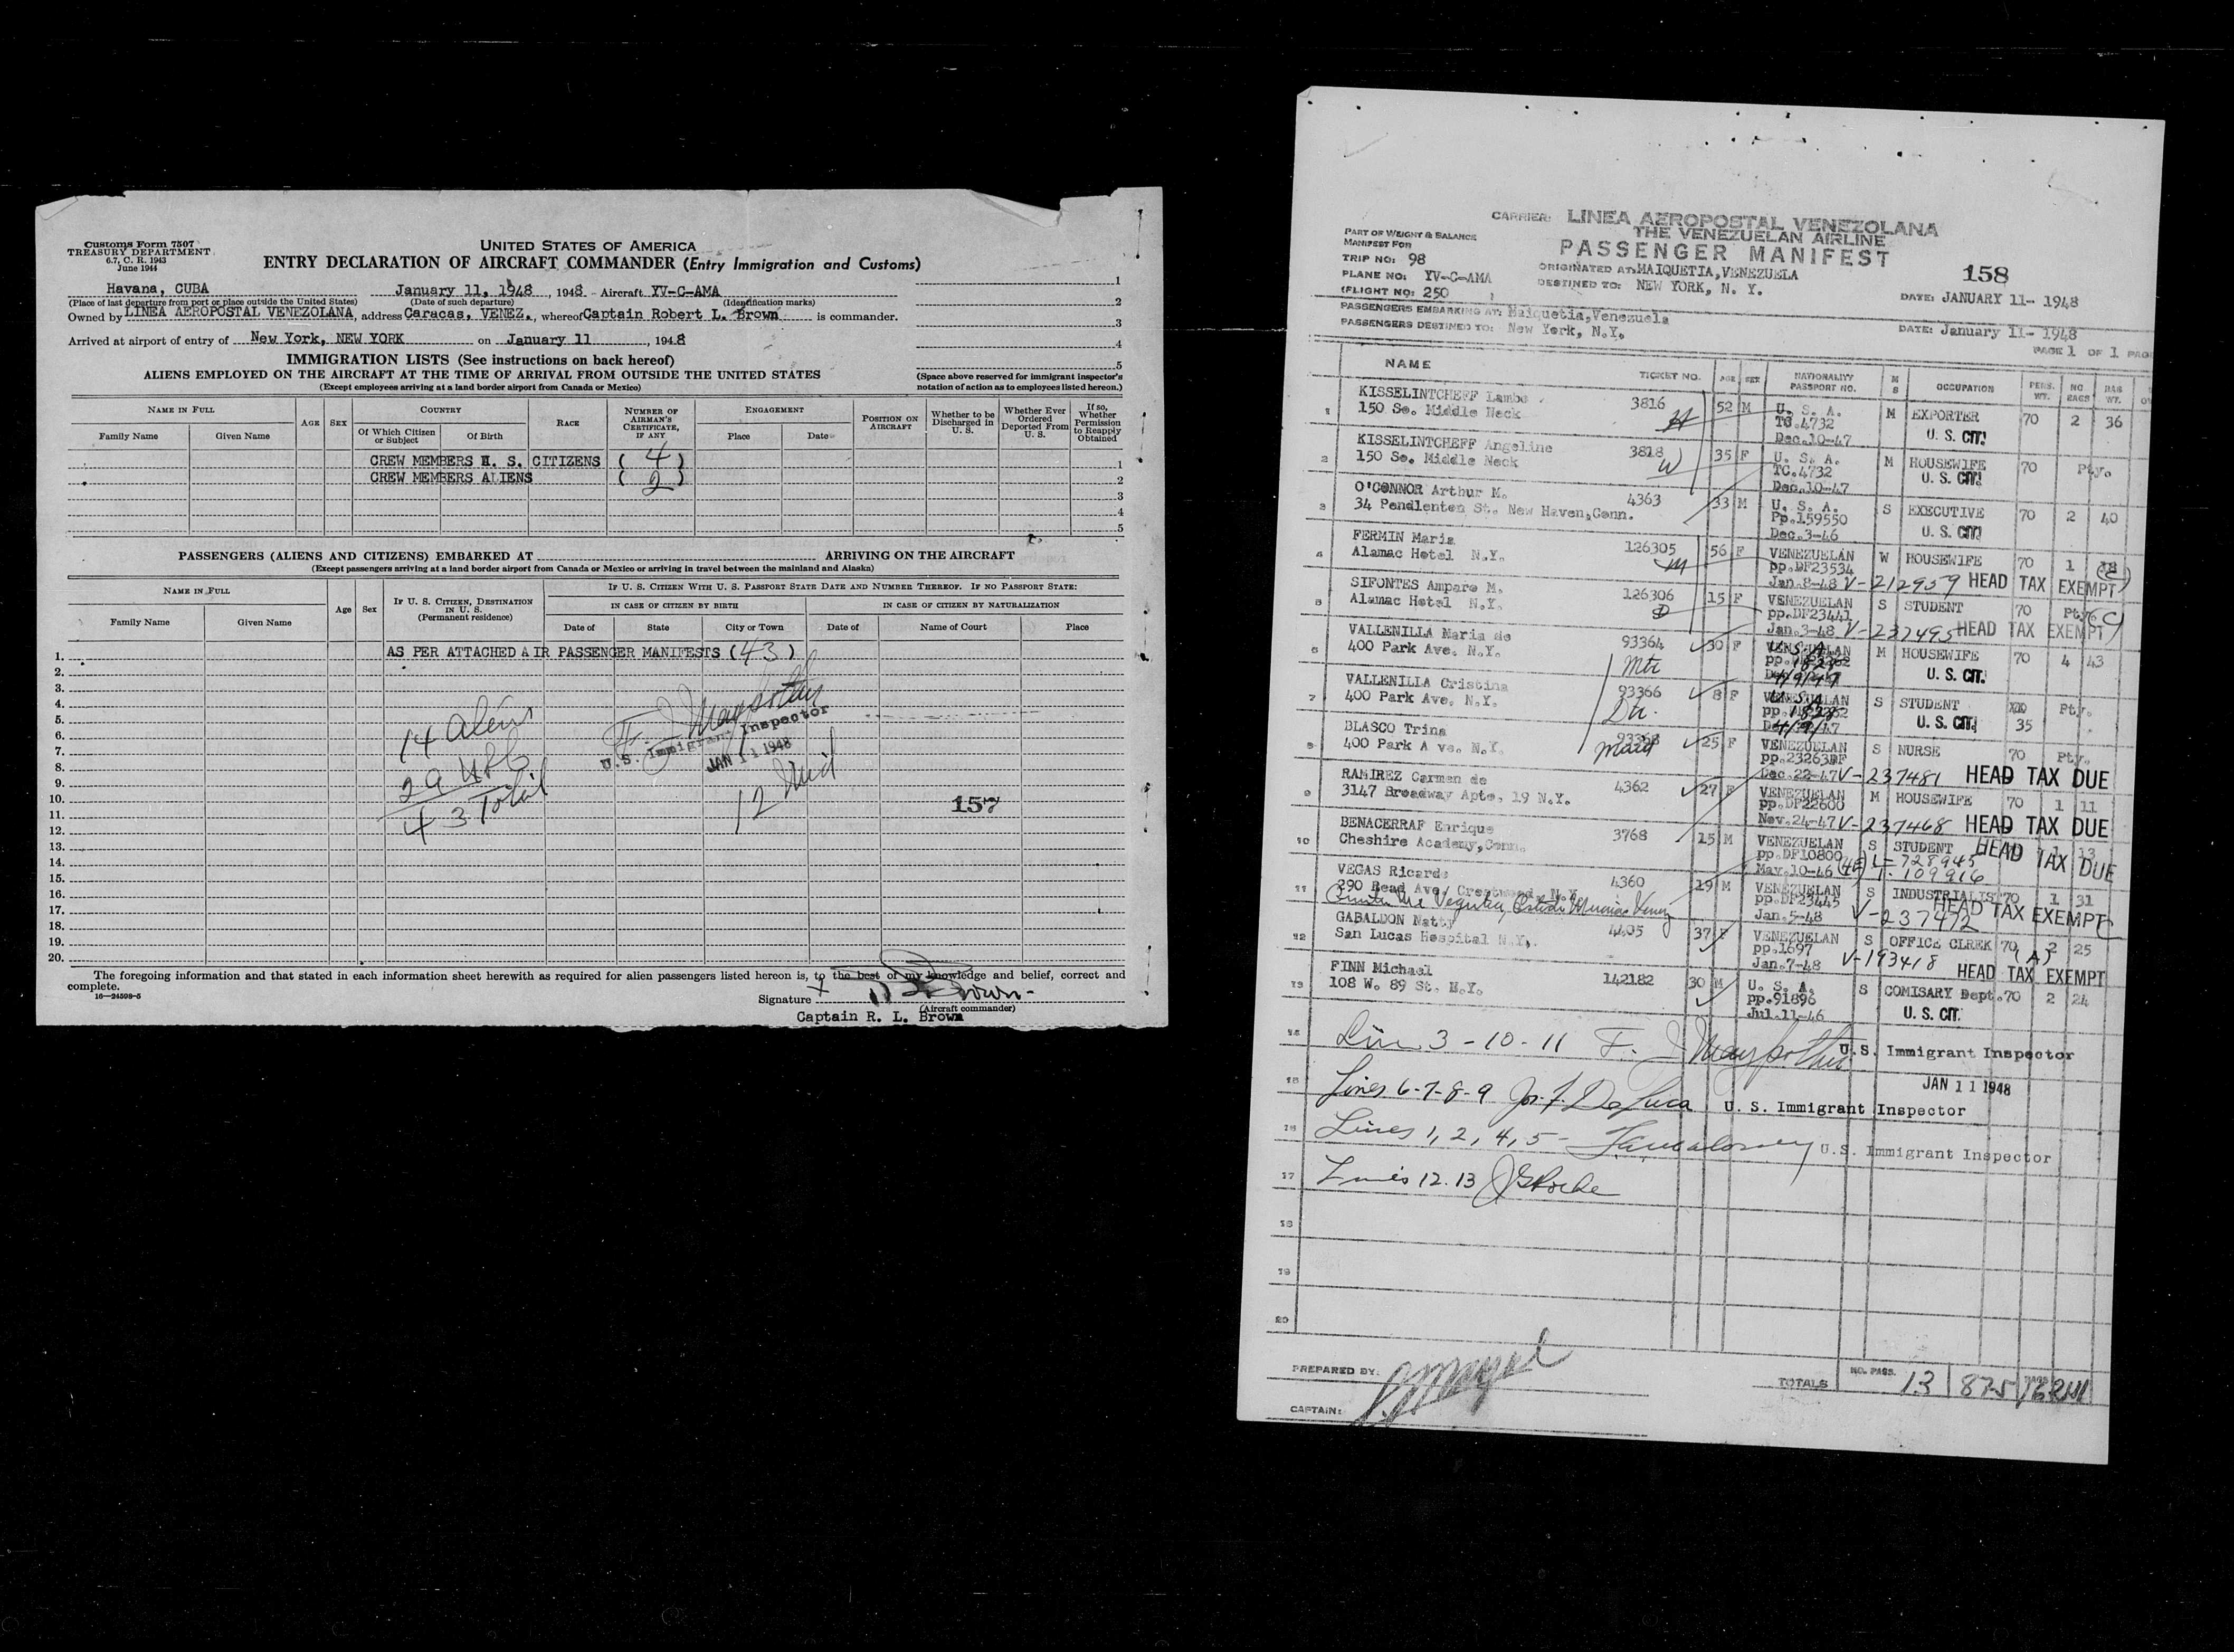 Customs Form 7507
TREASURY DEPARTMENT
6.7, C. R. 1943
June 1944
UNITED STATES OF AMERICA
ENTRY DECLARATION OF AIRCRAFT COMMANDER (Entry Immigration and Customs)
Havana, CUBA January 11, 1948, 1948 - Aircraft YV-C-AMA
(Place of last departure from port or place outside the United States) (Date of such departure) (Identification marks)
Owned by LINEA AEROPOSTAL VENEZOLANA, address Caracas, VENEZ., whereof Captain Robert L. Brown is commander.
Arrived at airport of entry of New York, NEW YORK on January 11, 1948
1
2
3
4
5
(Space above reserved for immigrant inspector's notation of action as to employees listed hereon.)
IMMIGRATION LISTS (See instructions on back hereof)
ALIENS EMPLOYED ON THE AIRCRAFT AT THE TIME OF ARRIVAL FROM OUTSIDE THE UNITED STATES
(Except employees arriving at a land border airport from Canada or Mexico)
NAME IN FULL AGE SEX COUNTRY RACE NUMBER OF AIRMAN'S CERTIFICATE, IF ANY ENGAGEMENT POSITION ON AIRCRAFT Whether to be Discharged in U. S. Whether Ever Ordered Deported From U. S. If so, Whether Permission to Reapply Obtained
Family Name Given Name Of Which Citizen or Subject Of Birth Place Date
CREW MEMBERS U. S. CITIZENS ( 4 ) 1
CREW MEMBERS ALIENS ( 2 ) 2
3
4
5
PASSENGERS (ALIENS AND CITIZENS) EMBARKED AT ARRIVING ON THE AIRCRAFT
(Except passengers arriving at a land border airport from Canada or Mexico or arriving in travel between the mainland and Alaska)
NAME IN FULL Age Sex IF U. S. CITIZEN, DESTINATION IN U. S. (Permanent residence) IF U. S. CITIZEN WITH U. S. PASSPORT STATE DATE AND NUMBER THEREOF. IF NO PASSPORT STATE:
IN CASE OF CITIZEN BY BIRTH IN CASE OF CITIZEN BY NATURALIZATION
Family Name Given Name Date of State City or Town Date of Name of Court Place
1. AS PER ATTACHED AIR PASSENGER MANIFESTS (43)
2.
3.
4.
5.
6.
7.
8.
9.
10.
11.
12.
13.
14.
15.
16.
17.
18.
19.
20.
14 Aliens
29
43 Total
U.S. Immigrant Inspector
JAN 11 1948
12 Mid
157
The foregoing information and that stated in each information sheet herewith as required for alien passengers listed hereon is, to the best of my knowledge and belief, correct and complete.
16—24598-5
Signature X
(Aircraft commander)
Captain R. L. Brown
CARRIER: LINEA AEROPOSTAL VENEZOLANA
THE VENEZUELAN AIRLINE
PASSENGER MANIFEST
PART OF WEIGHT & BALANCE
MANIFEST FOR
TRIP NO: 98
PLANE NO: YV-C-AMA
(FLIGHT NO: 250 )
ORIGINATED AT: MAIQUETIA, VENEZUELA
DESTINED TO: NEW YORK, N. Y.
158
DATE: JANUARY 11- 1948
PASSENGERS EMBARKING AT: Maiquetia, Venezuela
PASSENGERS DESTINED TO: New York, N.Y.
DATE: January 11- 1948
PAGE 1 OF 1
NAME TICKET NO. AGE SEX NATIONALITY PASSPORT NO. M S OCCUPATION PERS. WT. NO. BAGS BAG WT.
1 KISSELINTCHEFF Lambo 3816 H 52 M U. S. A. M EXPORTER 70 2 36
150 So. Middle Neck TC.4732 U. S. CIT.
Dec.10-47
2 KISSELINTCHEFF Angeline 3818 W 35 F U. S. A. M HOUSEWIFE 70 Pty.
150 So. Middle Neck TC.4732 U. S. CIT.
Dec.10-47
3 O'CONNOR Arthur M. 4363 33 M U. S. A. S EXECUTIVE 70 2 40
34 Pendlenton St. New Haven, Conn. Pp.159550 U. S. CIT.
Dec.3-46
4 FERMIN Maria 126305 M 56 F VENEZUELAN W HOUSEWIFE 70 1
Alamac Hotel N.Y. pp.DF23534
Jan.8-48 V-212959 HEAD TAX EXEMPT
5 SIFONTES Ampare M. 126306 D 15 F VENEZUELAN S STUDENT 70 Pty.
Alamac Hotel N.Y. pp.DF23441
Jan.3-48 V-237495 HEAD TAX EXEMPT
6 VALLENILLA Maria de 93364 Mtr 30 F M HOUSEWIFE 70 4 43
400 Park Ave. N.Y. U. S. CIT.
7 VALLENILLA Cristina 93366 Dtr. 8 F S STUDENT 35 Pty.
400 Park Ave. N.Y. U. S. CIT.
8 BLASCO Trina 93368 Maid 25 F VENEZUELAN S NURSE 70 Pty.
400 Park Ave. N.Y. pp.23263DF
Dec.22-47 V-237481 HEAD TAX DUE
9 RAMIREZ Carmen de 4362 27 F VENEZUELAN M HOUSEWIFE 70 1 11
3147 Broadway Apto. 19 N.Y. pp.DF22600
Nov.24-47 V-237468 HEAD TAX DUE
10 BENACERRAF Enrique 3768 15 M VENEZUELAN S STUDENT 1 13
Cheshire Academy, Conn. pp.DF10800 HEAD TAX DUE
May.10-46 (4E) L-728945
T-109916
11 VEGAS Ricardo 4360 19 M VENEZUELAN S INDUSTRIALIST 70 1 31
290 Read Ave. Crestwood, N.Y. pp.DF23445 HEAD TAX EXEMPT
Jan.5-48 V-237472
12 GABALDON Natty 4405 37 F VENEZUELAN S OFFICE CLREK 70 2 25
San Lucas Hospital N.Y. pp.1697 (A)
Jan.7-48 V-193418 HEAD TAX EXEMPT
13 FINN Michael 142182 30 M U. S. A. S COMISARY Dept. 70 2 24
108 W. 89 St. N.Y. pp.91896 U. S. CIT.
Jul.11-46
14 Line 3 - 10 - 11 U.S. Immigrant Inspector
JAN 11 1948
15 Lines 6-7-8-9 Jos. F. DeLuca U. S. Immigrant Inspector
16 Lines 1, 2, 4, 5 - U.S. Immigrant Inspector
17 Lines 12. 13
18
19
20
PREPARED BY:
CAPTAIN:
TOTALS NO. PASS. 13 875 BAGS